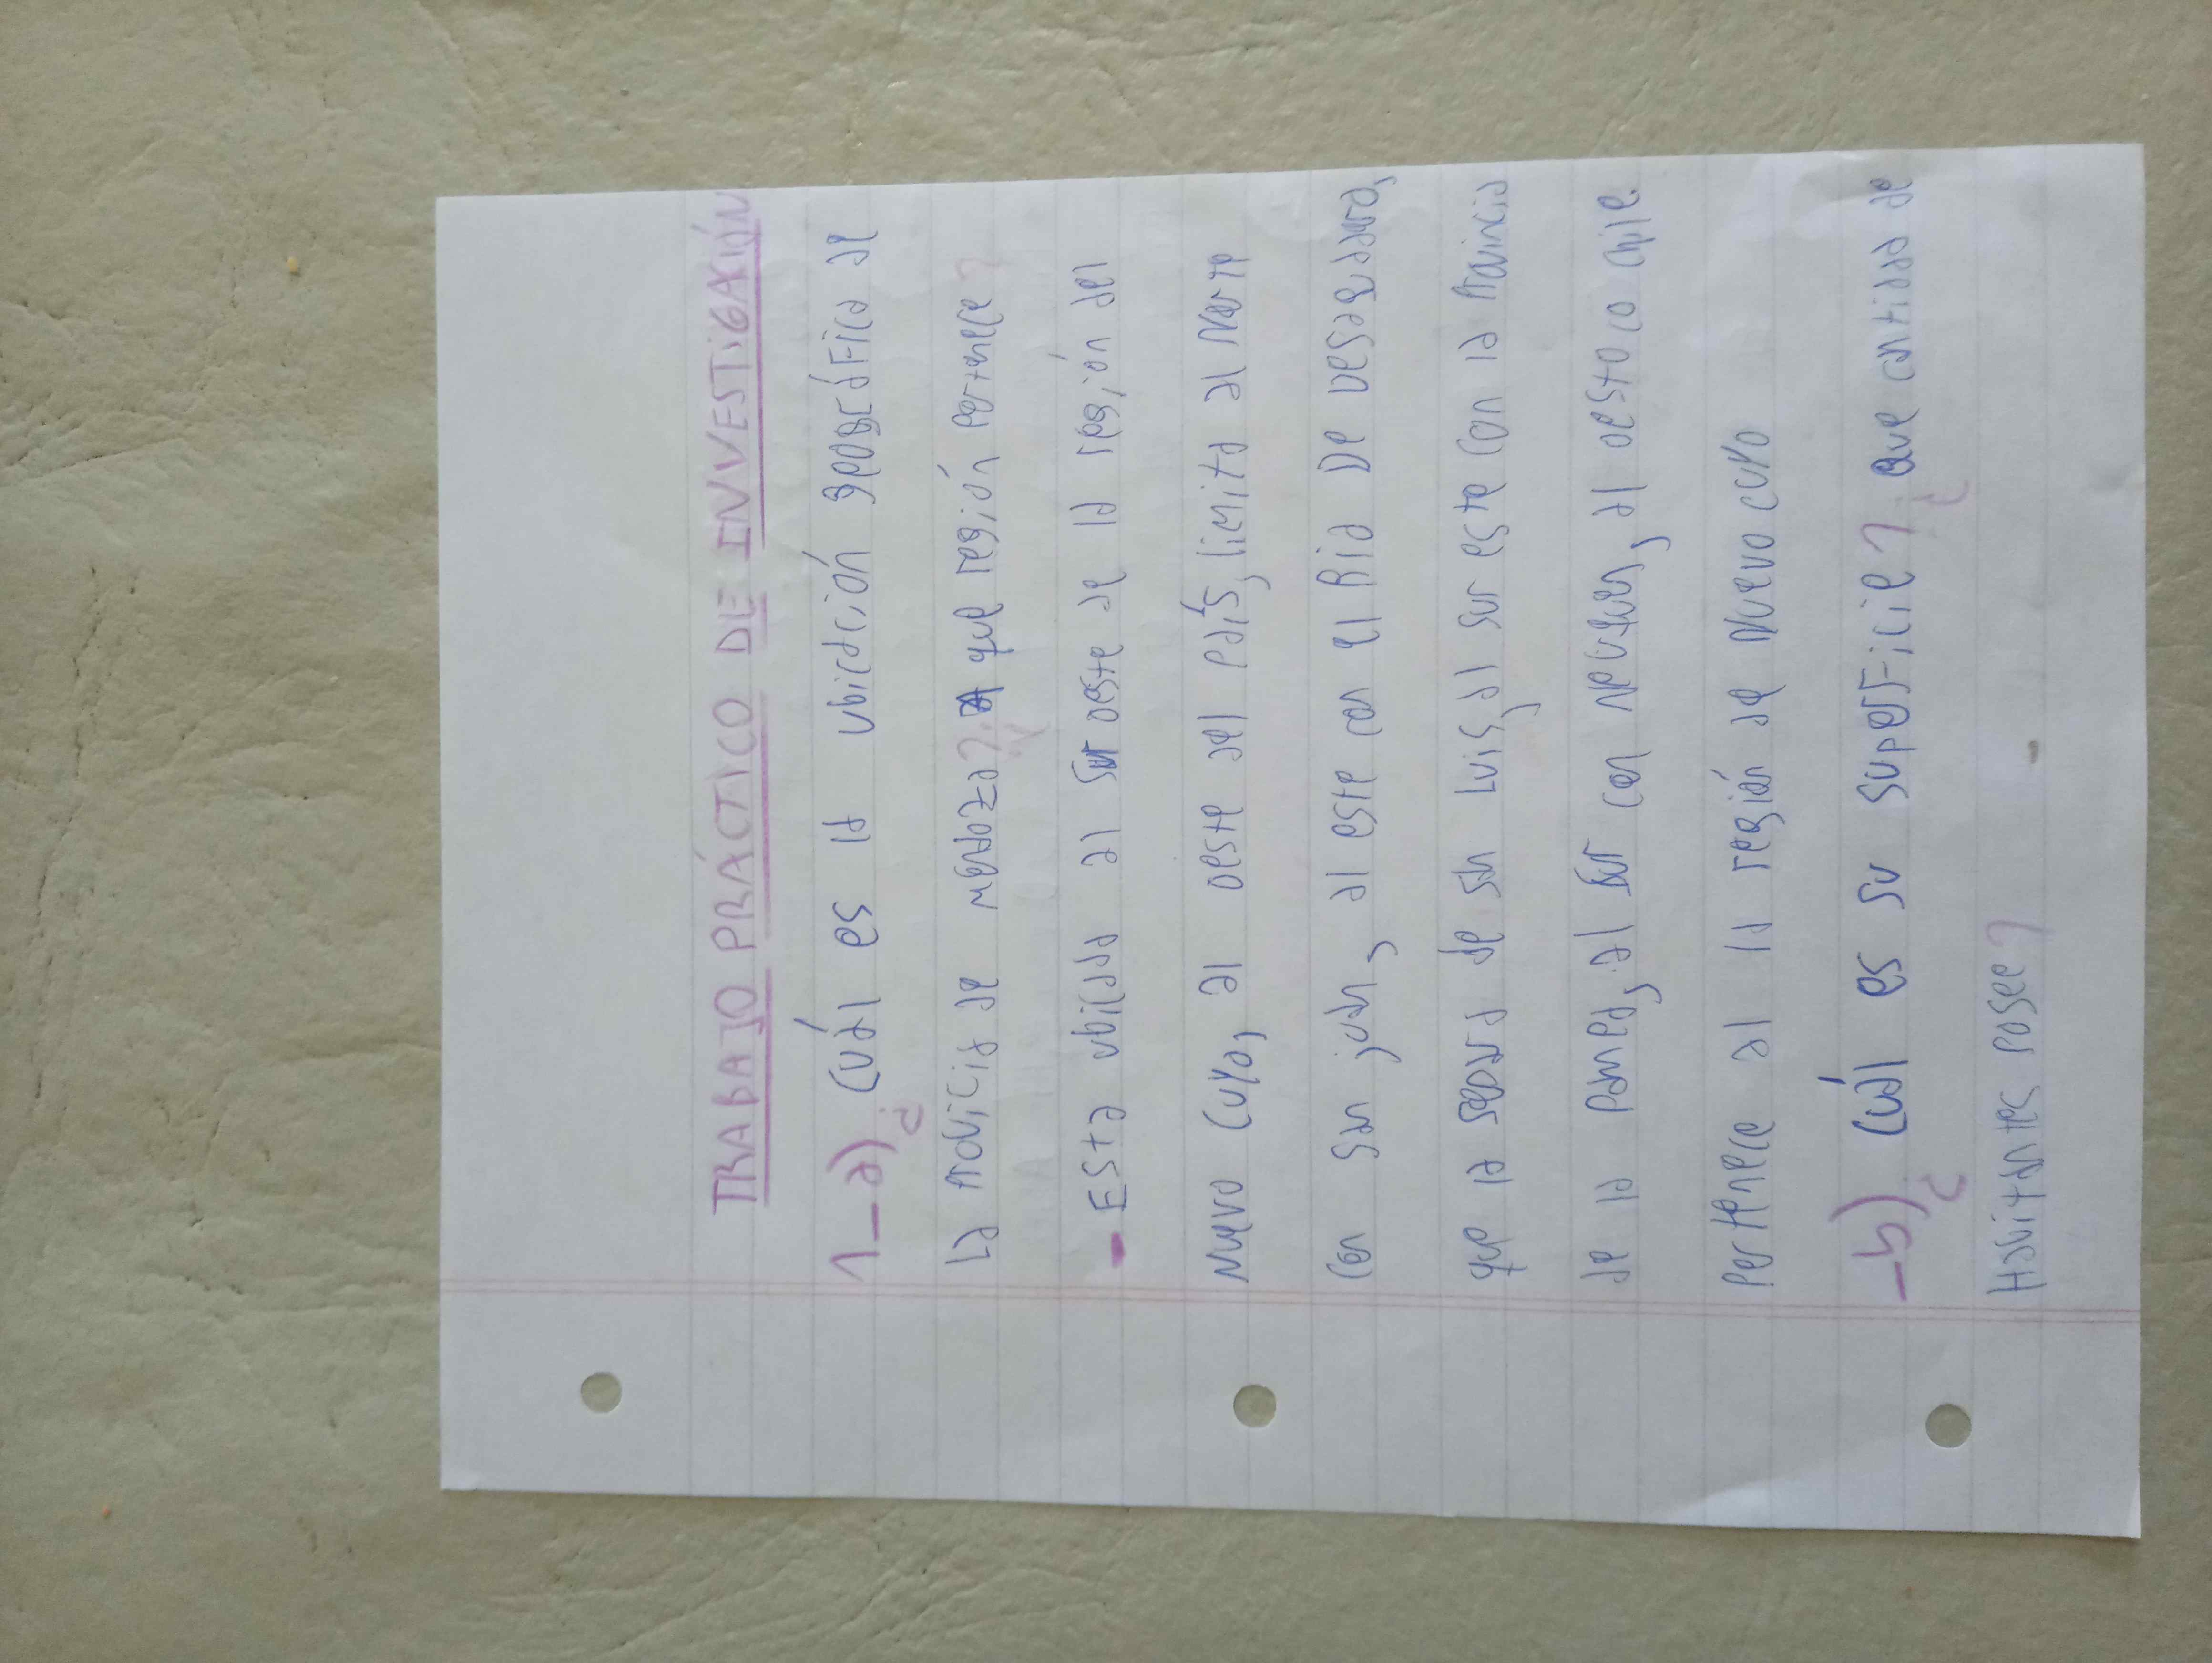 TRABAJO PRÁCTICO DE INVESTIGACIÓN
1_a) ¿Cuál es la ubicación geográfica de
la provicia de mendoza? ¿A que región pertenece?
- Esta ubicada al sur oeste de la región del
Nuevo Cuyo, al oeste del país, limita al Norte
Con San juan, al este con el Ria De Desaguadaro,
que la separa de san Luis, al sur este con la provincia
de la Pampa, al sur con neuquen, al oesto co chile.
Pertenece al la región de Nuevo cuyo
_b) ¿Cuál es su superficie? ¿que cantidad de
Havitantes posee?